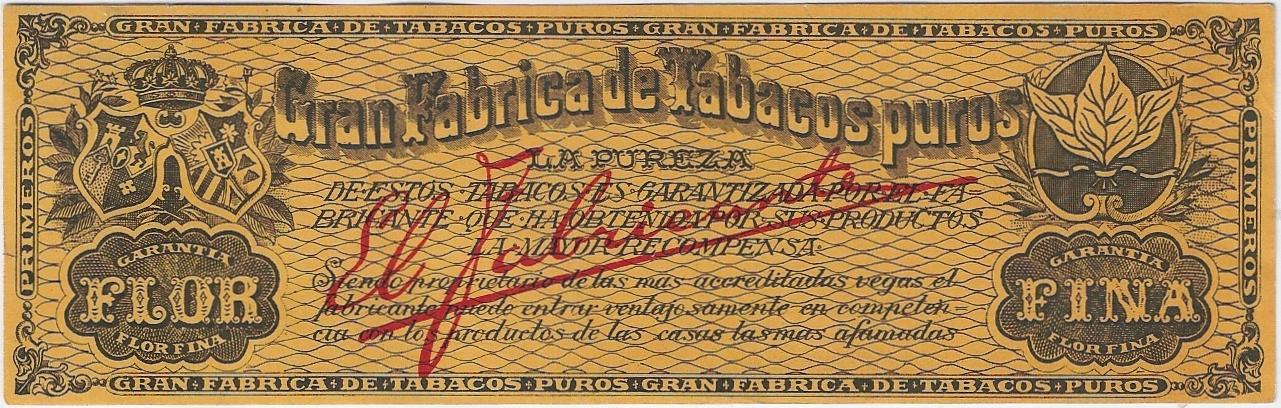 GRAN·FABRICA·DE·TABACOS·PUROS·GRAN·FABRICA·DE·TABACOS·PUROS
PRIMEROS
Gran Fabrica de Tabacos puros
PRIMEROS
LA PUREZA
DE·ESTOS·TABACOS·ES·GARANTIZADA·POR·EL·FA-
BRICANTE·QUE·HA·OBTENIDA·POR·SUS·PRODUCTOS
LA·MAYOR·RECOMPENSA·
El Fabricante
Siendo proprietario de las mas accreditadas vegas el
fabricante puede entrar ventajosamente en competen=
cia con los productos de las casas las mas afamadas
GARANTIA
FLOR
FLOR FINA
GARANTIA
FINA
FLOR FINA
GRAN·FABRICA·DE·TABACOS·PUROS·GRAN·FABRICA·DE·TABACOS·PUROS